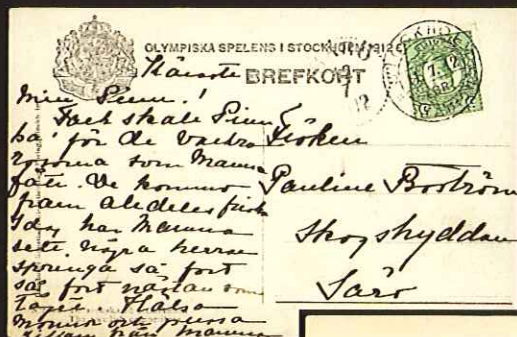 OLYMPISKA SPELENS I STOCKHOLM 1912
BREFKORT
Käraste
Min Pinn!
Tack skall Pinn
ha för de vackra
som Mamma
fått. De kommo
fram alldeles
Idag har Mamma
sett några herrar
springa så fort
så fort nästan som
Tåget. Hälsa
Mormor och
från Mamma
Fröken
Pauline Boström
Skogshyddan
Särö
7.12